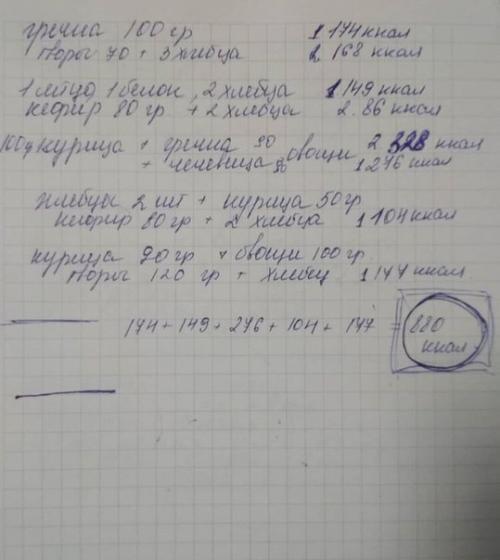 гречка 100 гр 1 174 ккал
творог 70 + 3 хлебца 2 168 ккал
1 яйцо 1 белок, 2 хлебца 1 149 ккал
кефир 80 гр + 2 хлебца 2. 86 ккал
100 г курица + гречка 90 овощи 2 328 ккал
+ чечевица 90 1 276 ккал
хлебцы 2 шт + курица 50 гр
кефир 80 гр + 2 хлебца 1 104 ккал
курица 90 гр + овощи 100 гр
творог 120 гр + хлебец 1 177 ккал
174 + 149 + 276 + 104 + 177 = 880
ккал